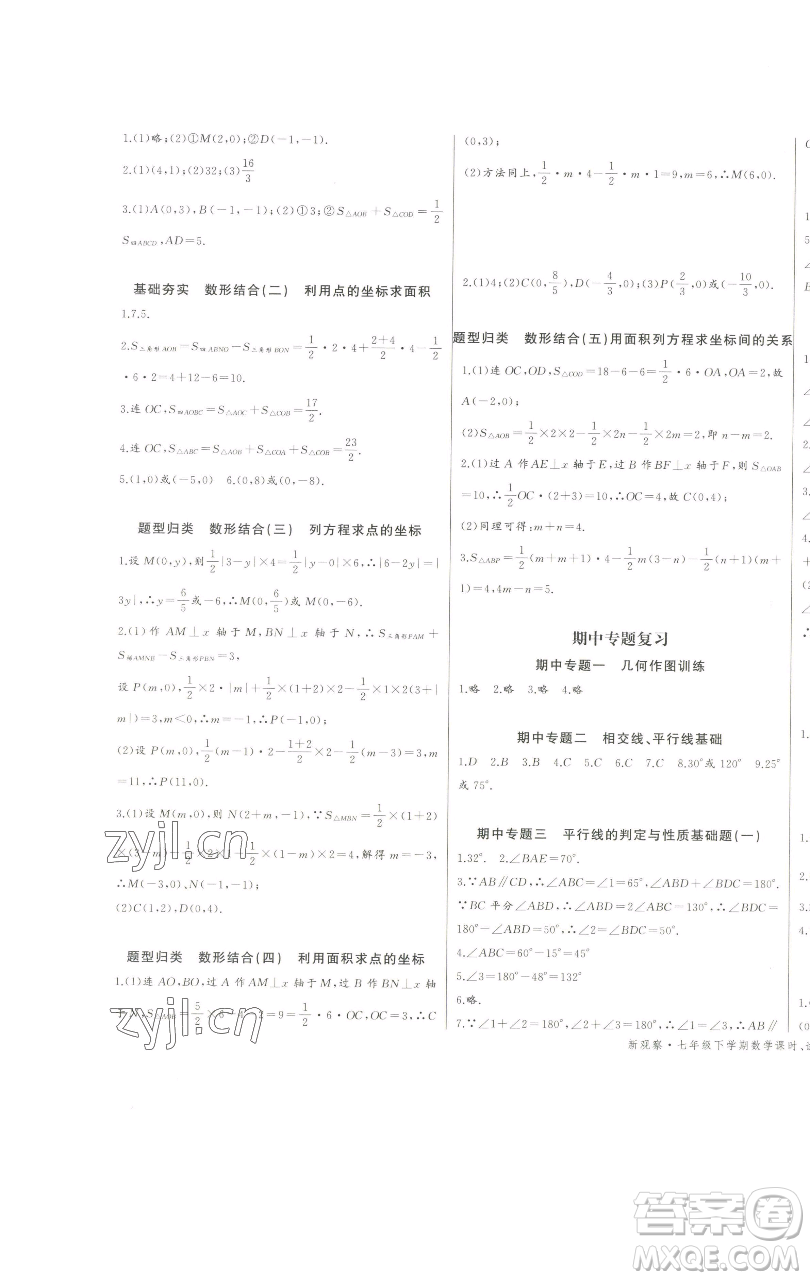 1.(1)略;(2)①M(2,0);②D(-1,-1).
2.(1)(4,1);(2)32;(3)16/3
3.(1)A(0,3),B(-1,-1);(2)①3;②S△AOB+S△COD=1/2
S四ABCD,AD=5.
基础夯实 数形结合(二) 利用点的坐标求面积
1.7.5.
2.S三角形AOB=S四ABNO-S三角形BON=1/2·2·4+(2+4)/2·4-1/2
·6·2=4+12-6=10.
3.连OC,S四AOBC=S△AOC+S△COB=17/2.
4.连OC,S△ABC=S△AOB+S△COA+S△COB=23/2.
5.(1,0)或(-5,0) 6.(0,8)或(0,-8).
题型归类 数形结合(三) 列方程求点的坐标
1.设M(0,y),则1/2|3-y|×4=1/2|y-0|×6,∴|6-2y|=|
3y|,∴y=6/5或-6,∴M(0,6/5)或M(0,-6).
2.(1)作AM⊥x轴于M,BN⊥x轴于N,∵S三角形PAM+
S梯AMNB-S三角形PBN=3,
设P(m,0),1/2×2·|m|+1/2(2+3)×1-1/2×3(1+|
m|)=3,m<0,∴m=-4,∴P(-4,0);
(2)设P(m,0),1/2(m-2)·2-(1+2)/2×3+1/2·m=
11,∴P(11,0).
3.(1)设M(m,0),则N(2+m,-1),∵S△MBN=1/2×(1+2)
×(3-m)-1/2×2×2-1/2×(1-m)×2=4,解得m=-3,
∴M(-3,0)、N(-1,-1).
(2)C(1,2),D(0,4).
题型归类 数形结合(四) 利用面积求点的坐标
1.(1)连AO,BO,过A作AM⊥x轴于M,过B作BN⊥x轴
于N,S△AOB=5/2×4-2=9=1/2·6·OC,OC=3,∴C
(0,3);
(2)方法同上,1/2·m·4-1/2·m·1=9,m=6,∴M(6,0).
2.(1)4;(2)C(0,8/5),D(-4/3,0);(3)P(2/3,0)或(-10/3,0).
题型归类 数形结合(五)用面积列方程求坐标间的关系
1.(1)连OC,OD,S△COD=18-6-6=1/2·6·OA,OA=2,故
A(-2,0);
(2)S△AOB=1/2×2×2-1/2×2n-1/2×2m=2,即n-m=2.
2.(1)过A作AE⊥x轴于E,过B作BF⊥x轴于F,则S△OAB
=10,∴1/2OC·(2+3)=10,OC=4,故C(0,4);
(2)同理可得:m+n=4.
3.S△ABP=1/2(m+m+1)·4-1/2m(3-n)-1/2(n+1)(m+
1)=4,4m-n=5.
期中专题复习
期中专题一 几何作图训练
1.略 2.略 3.略 4.略
期中专题二 相交线、平行线基础
1.D 2.B 3.B 4.C 5.B 6.C 7.C 8.30°或120° 9.25°
或75°.
期中专题三 平行线的判定与性质基础题(一)
1.32°. 2.∠BAE=70°.
3.∵AB∥CD,∴∠ABC=∠1=65°,∠ABD+∠BDC=180°.
∵BC平分∠ABD,∴∠ABD=2∠ABC=130°,∴∠BDC=
180°-∠ABD=50°,∴∠2=∠BDC=50°.
4.∠ABC=60°-15°=45°
5.∠3=180°-48°=132°
6.略.
7.∵∠1+∠2=180°,∠2+∠3=180°,∴∠1=∠3,∴AB∥
新观察·七年级下学期数学课时、
zyjl.cn
zyjl.cn
答案圈
MXQE.COM